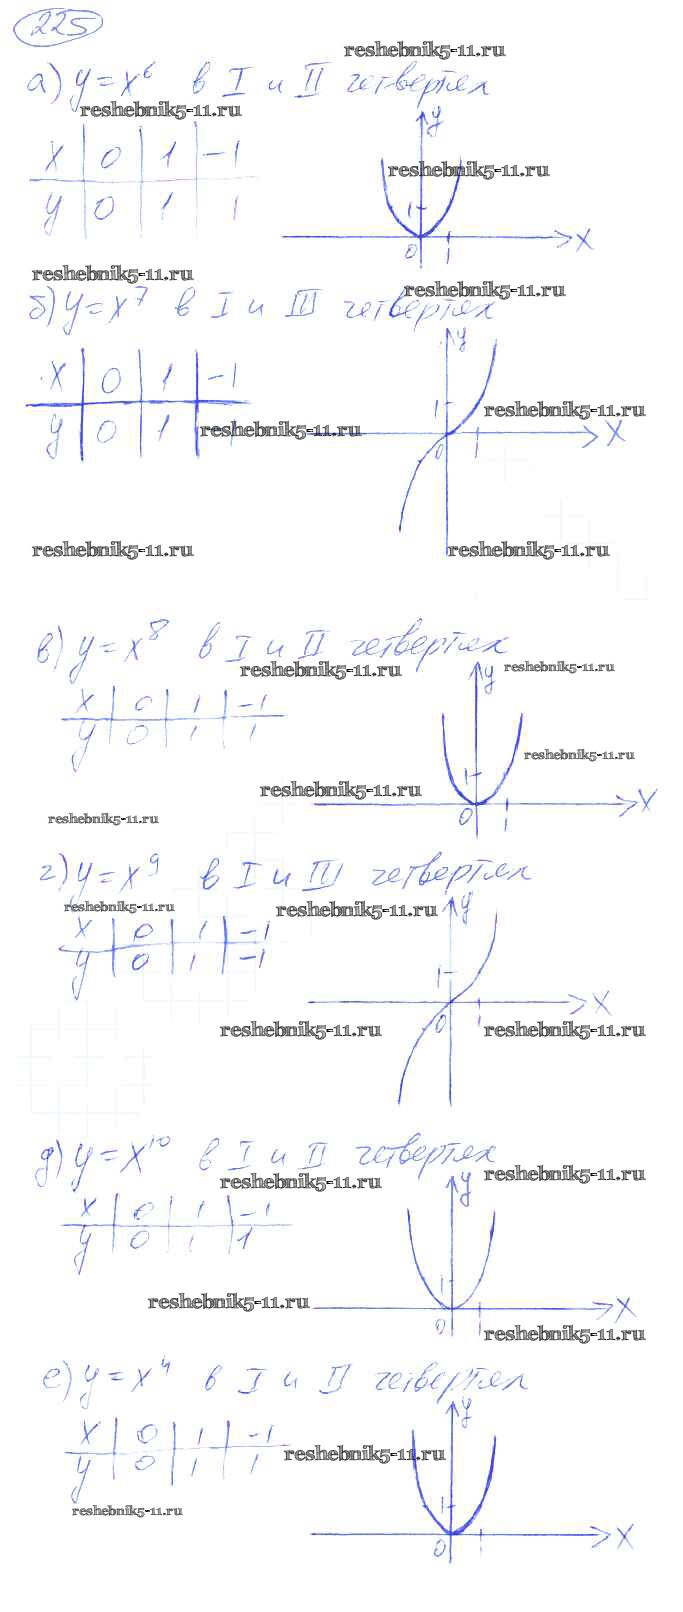 225
reshebnik5-11.ru
а) y = x⁶ в I и II четвертях
reshebnik5-11.ru
y
x 0 1 -1
reshebnik5-11.ru
y 0 1 1
1
0 1 x
reshebnik5-11.ru
reshebnik5-11.ru
б) y = x⁷ в I и III четвертях
y
x 0 1 -1
1
reshebnik5-11.ru
y 0 1
reshebnik5-11.ru
0 1 x
reshebnik5-11.ru
reshebnik5-11.ru
в) y = x⁸ в I и II четвертях
reshebnik5-11.ru
reshebnik5-11.ru
y
x 0 1 -1
y 0 1 1
reshebnik5-11.ru
1
reshebnik5-11.ru
0 1 x
reshebnik5-11.ru
г) y = x⁹ в I и III четвертях
reshebnik5-11.ru
reshebnik5-11.ru
y
x 0 1 -1
y 0 1 -1
1
0 1 x
reshebnik5-11.ru
reshebnik5-11.ru
д) y = x¹⁰ в I и II четвертях
reshebnik5-11.ru
reshebnik5-11.ru
y
x 0 1 -1
y 0 1 1
1
reshebnik5-11.ru
0 1 x
reshebnik5-11.ru
е) y = x⁴ в I и II четвертях
y
x 0 1 -1
reshebnik5-11.ru
y 0 1 1
reshebnik5-11.ru
1
0 1 x